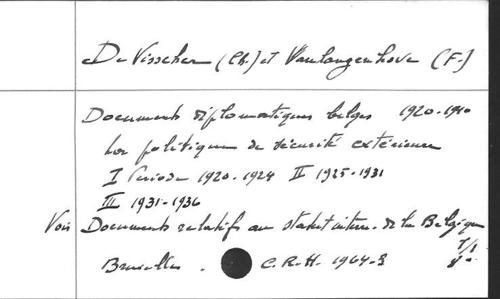 De Visscher (Ch.) et Vanlangenhove (F.)
Documents diplomatiques belges 1920-1940
La politique de sécurité extérieure
I Période 1920-1924 II 1925-1931
III 1931-1936
Voir Documents relatifs au statut intern. de la Belgique
Bruxelles. C.R.H. 1964-